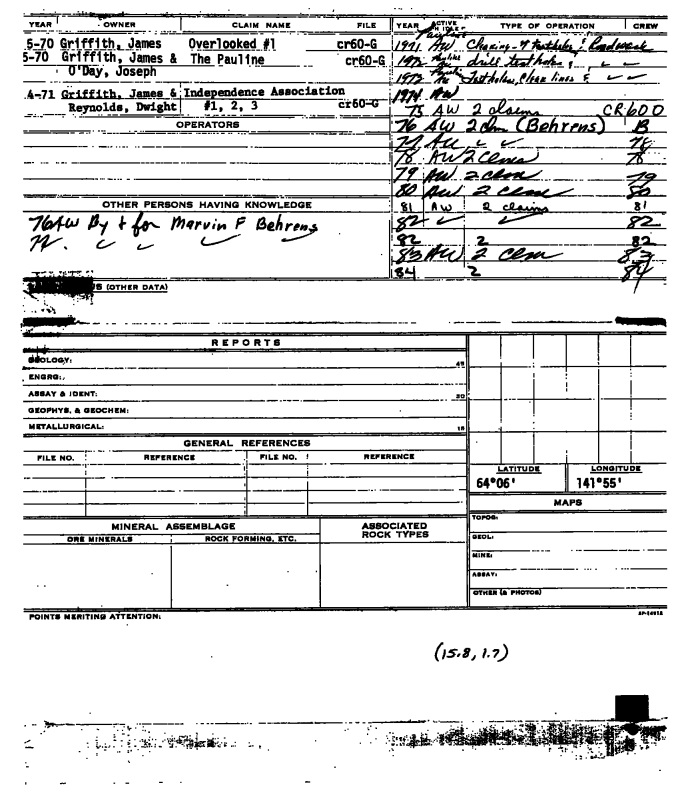 YEAR OWNER CLAIM NAME FILE
5-70 Griffith, James Overlooked #1 cr60-G
5-70 Griffith, James & The Pauline cr60-G
O'Day, Joseph
4-71 Griffith, James & Independence Association
Reynolds, Dwight #1, 2, 3 cr60-G
OPERATORS
OTHER PERSONS HAVING KNOWLEDGE
76 AW By & for Marvin F Behrens
77. ✓ ✓ ✓ ✓
YEAR ACTIVE TYPE OF OPERATION CREW
Pauline
1971 AW Testholes & Roadwork
1972 AW drill testholes, ✓ ✓
1973 AW Testholes, Clear lines & ✓ ✓
1974 AW
75 AW 2 claims CR600
76 AW 2 clm (Behrens) B
77 AW ✓ ✓ 78
78 AW 2 Clms 78
79 AW 2 clm 79
80 AW 2 clm 80
81 AW 2 claims 81
82 ✓ ✓ 82
82 2 82
83 AW 2 clm 83
84 2 84
(OTHER DATA)
REPORTS
GEOLOGY:
ENGRG:
ASSAY & IDENT:
GEOPHYS. & GEOCHEM:
METALLURGICAL:
GENERAL REFERENCES
FILE NO. REFERENCE FILE NO. REFERENCE
LATITUDE LONGITUDE
64°06' 141°55'
MAPS
TOPOG:
GEOL:
MINE:
ASSAY:
OTHER (& PHOTOS)
MINERAL ASSEMBLAGE ASSOCIATED ROCK TYPES
ORE MINERALS ROCK FORMING, ETC.
POINTS MERITING ATTENTION:
(15.8, 1.7)